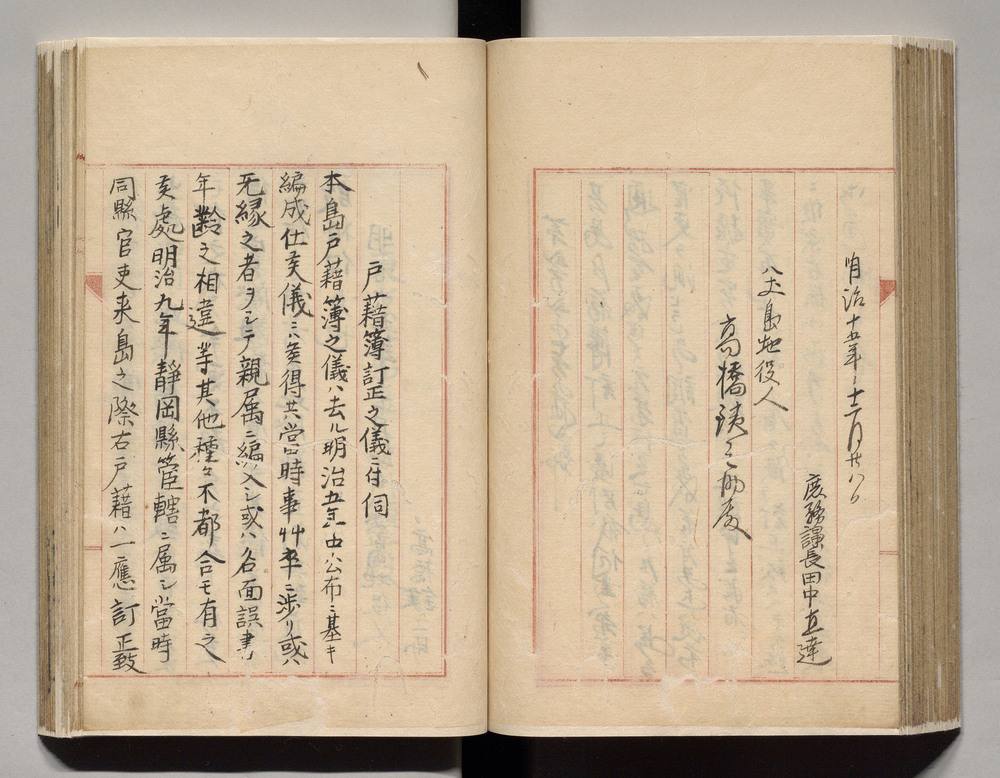 明治十五年十二月廿八日
庶務課長田中直達
八丈島地役人
高橋銕之助殿
戸藉簿訂正之儀ニ付伺
本島戸藉簿之儀ハ去ル明治五年中公布ニ基キ
編成仕候儀ニハ候得共當時事艸卒ニ渉リ或ハ
无縁之者ヲシテ親属ニ編入シ或ハ名面誤書
年齢之相違等其他種々不都合モ有之
候處明治九年静岡縣管轄ニ属シ當時
同縣官吏来島之際右戸藉ハ一應訂正致